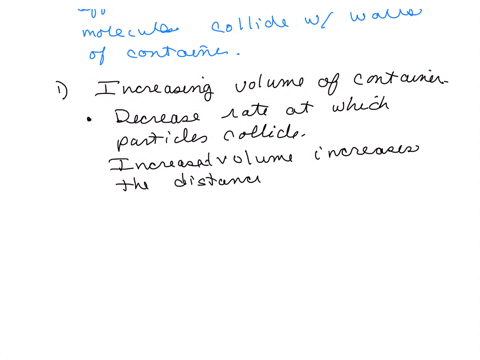 molecules collide w/ walls
of container.
1) Increasing volume of container
• Decrease rate at which
particles collide.
Increased volume increases
the distance